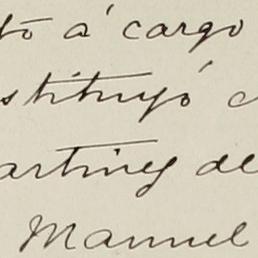 to á cargo
stituyó
artinez de
Manuel